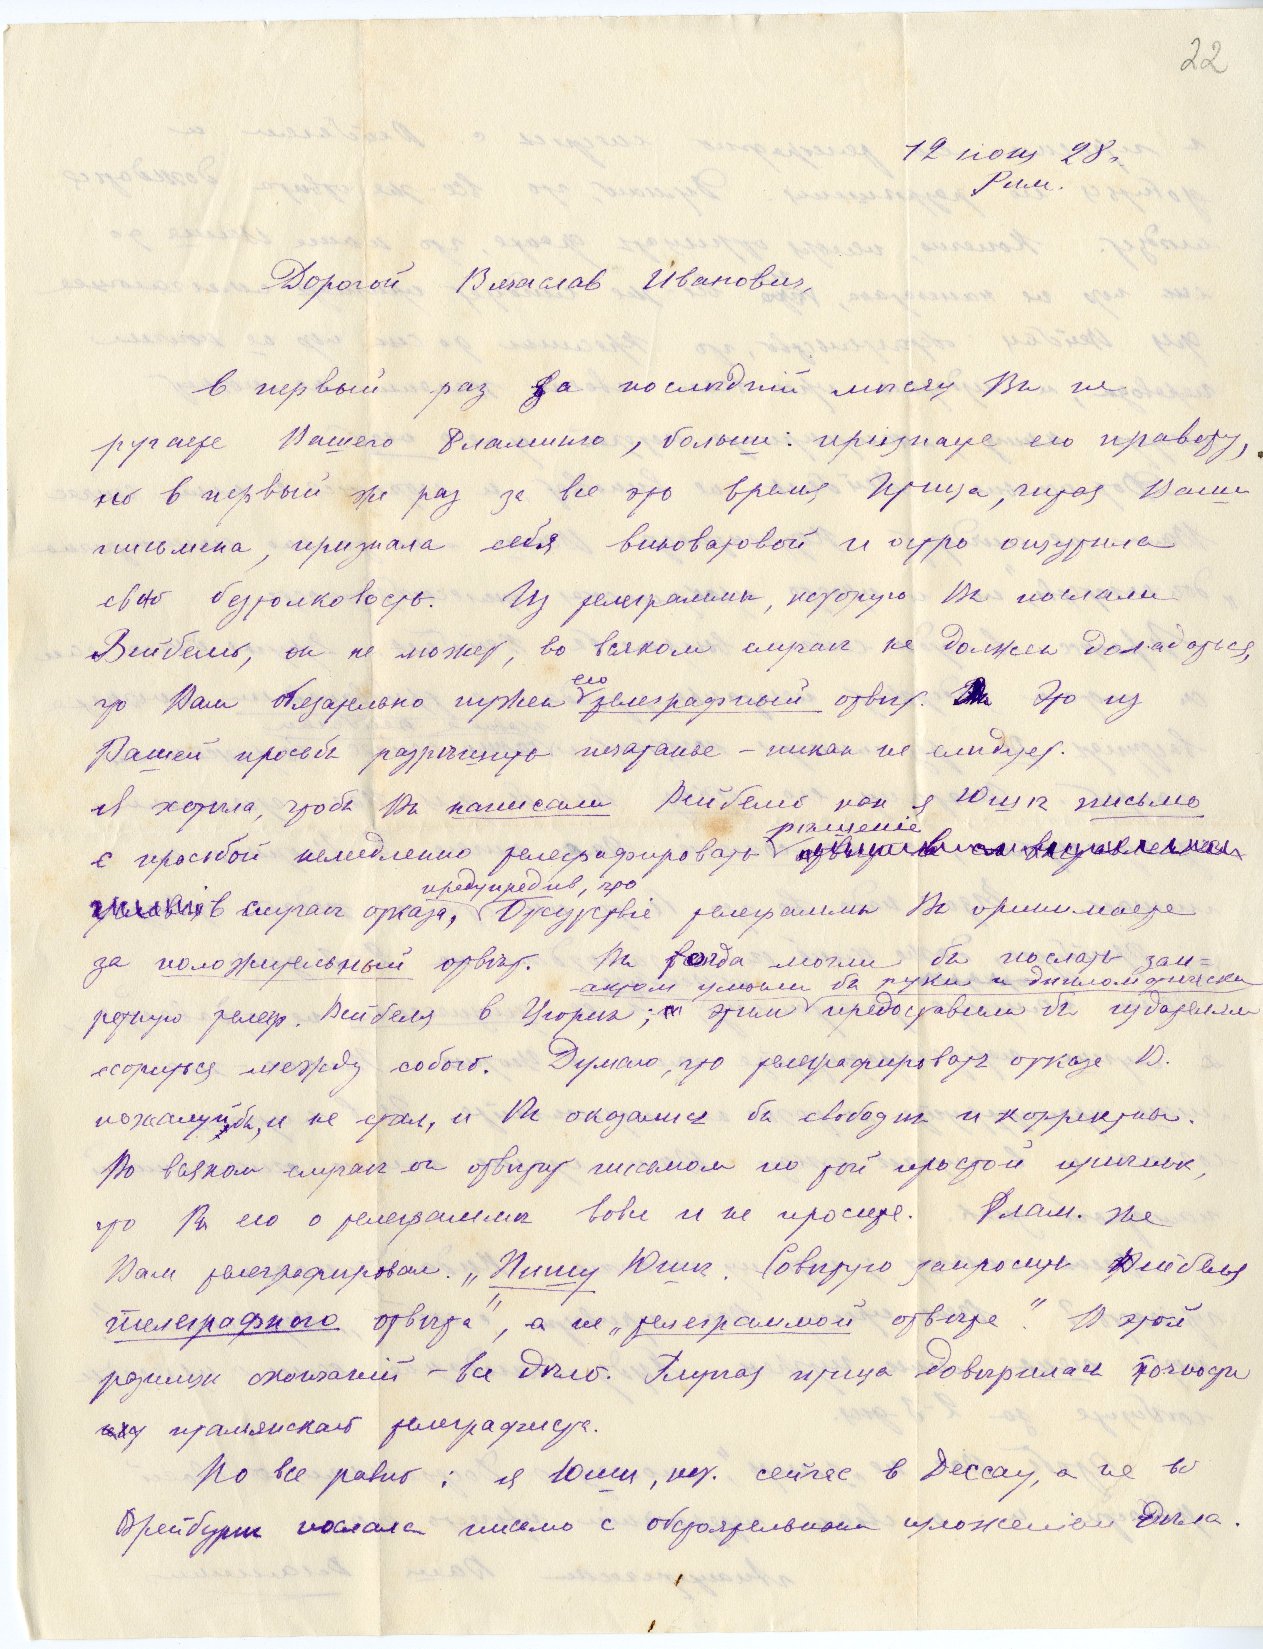 22
12 июня 28 г.
Рим.
Дорогой Вячеслав Иванович,
в первый раз за последний месяц Вы не
ругаете Вашего Фламинго, больше: признаете его правоту,
но в первый же раз за все это время Птица, читая Ваши
письмена, признала себя виноватовой и остро ощутила
свою бестолковость. Из телеграммы, которую Вы послали
Вейбелю, он не может, во всяком случаѣ не должен догадаться,
что Вам обязательно нужен его телеграфный отвѣт. Это из
Вашей просьбы разрѣшить печатанье – никак не слѣдует.
Я хотѣла, чтобы Вы написали Вейбелю как я Юшѣ письмо
с просьбой немедленно телеграфировать рѣшеніе
в случаѣ отказа, предупредив, что отсутствіе телеграммы Вы принимаете
за положительный отвѣт. Вы тогда могли бы послать зап-
ретную телегр. Вейбеля в Цюрих; этим актом умыли бы руки и дипломатически предоставили бы издателям
ссориться между собою. Думаю, что телеграфировать отказ В.
пожалуй бы, и не стал, и Вы оказались бы свободны и корректны.
Во всяком случаѣ он отвѣтит письмом по той простой причинѣ,
что Вы его о телеграммѣ вовсе и не просите. Флам. же
Вам телеграфировал: „Пишу Юшѣ. Совѣтую запросить Вейбеля
телеграфного отвѣта", а не „телеграммой отвѣта". В этой
разницѣ окончаній – все дѣло. Глупая птица довѣрилась точности
итальянскаго телеграфиста.
Но все равно: я Юшѣ, кот. сейчас в Дессау, а не во
Фрейбургѣ послала письмо с обстоятельным изложеніем дѣла.